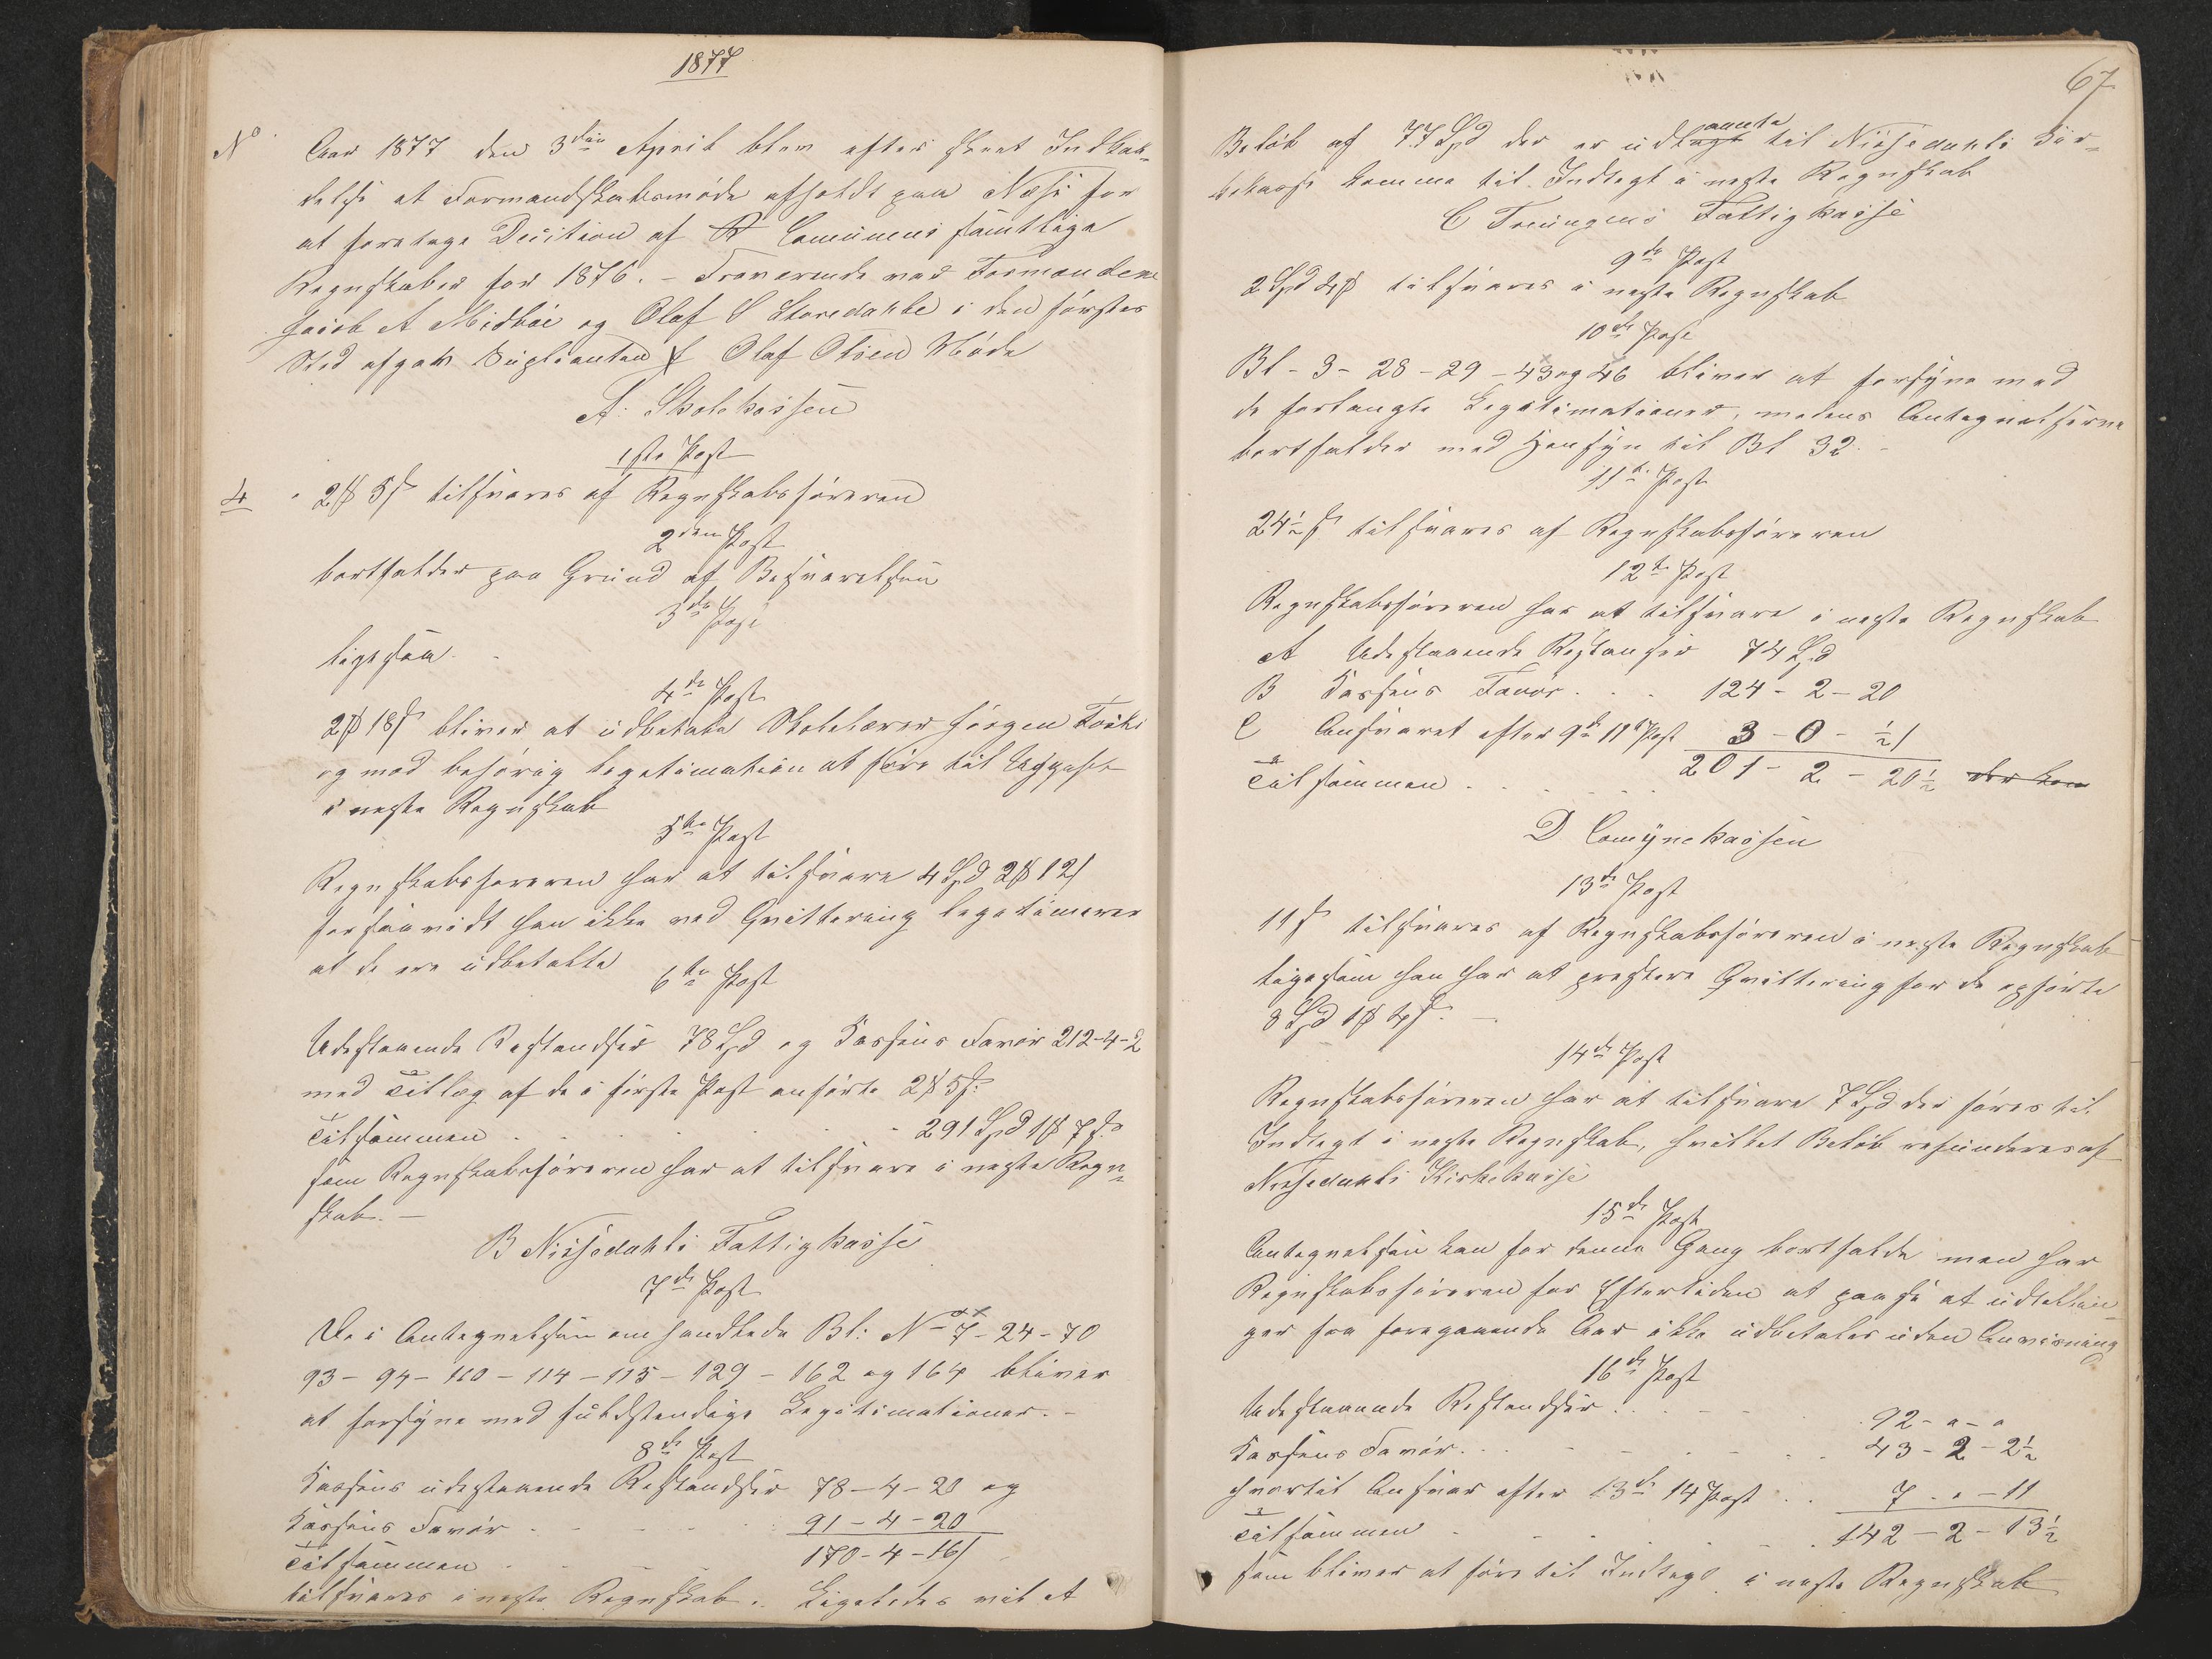 1877
No Aar 1877 den 3die April blev efter skeet Indkal-
delse et Formandskabsmøde afholdt paa Næse for
at foretage Decition af R Comunens samtlige
Regnskaber for 1876. – Fraværende var Formændene
Jacob A Midbøe og Olaf S Storedahle i den førstes
Sted afgav Suplianten Olaf Olsen Møde
A. Skolekassen
1ste Post
4 2 ß 5 s tilsvares af Regnskabsføreren
2den Post
bortfalder paa Grund af Besvarelsen
3die Post
ligesaa.
4de Post
2 ß 18 s bliver at udbetale Skolelærer Jørgen
og med behørig legetimation at føre til Udgift
i neste Regnskab
5te Post
Regnskabsføreren har at tilsvare 4 Spd 2 ß 12 s
forsaavidt han ikke ved Qvittering legetimerer
at de ere udbetalte
6te Post
Udestaaende Restandser 78 Spd og Kassens Favør 212-4-2
med Tillæg af de i første Post anførte 2 ß 5 s.
Tilsammen . . . . . . 291 Spd 1 ß 7 s.
som Regnskabsføreren har at tilsvare i neste Regn-
skab. –
B Nissedahls Fattigkasse
7de Post
De i Antegnelsen omhandlede Bl: No 7 - 24 - 70
93 - 94 - 110 - 114 - 115 - 129 - 162 og 164 bliver
at forsyne med fuldstendige Legitimationer. –
8de Post
Kassens udestaaende Restandser 78 - 4 - 20 og
Kassens Favør . . . . 91 - 4 - 20
Tilsammen . . . 170 - 4 - 16 s
tilsvares i neste Regnskab. Ligeledes vil et
67
Beløb af 77 Spd der er udlagt laante til Nissedahls Kir-
kekasse komme til Indtegt i neste Regnskab
C Treungens Fattigkasse
9de Post
2 Spd 4 ß tilsvares i neste Regnskab
10de Post
Bl - 3 - 28 - 29 - 43 og 46 bliver at forsyne med
de forlangte Legitimationer, medens Antegnelserne
bortfalder med Hensyn til Bl 32. –
11te Post
24½ s tilsvares af Regnskabsføreren
12te Post
Regnskabsføreren har at tilsvare i neste Regnskab
A Udestaaende Restanser 74 Spd
B Kassens Favør . . . 124 - 2 - 20
C Ansvaret efter 9de 11te Post 3 - 0 - ½ s
Tilsammen . . . . . 201 - 2 - 20½ der kom
D Comynekassen
13de Post
11 s tilsvares af Regnskabsføreren i neste Regnskab
ligesom han har at prestere Qvittering for de opførte
8 Spd 1 ß 4 s. –
14de Post
Regnskabsføreren har at tilsvare 7 Spd der føres til
Indtegt i neste Regnskab, hvilket Beløb refunderes af
Nissedahls Kirkekasse
15de Post
Antegnelsen kan for denne Gang bortfalde men har
Regnskabsføreren for Eftertiden at paase at udtellin-
ger fra foregaaende Aar ikke udbetales uden Anvisning
16de Post
Udestaaende Restandser . . . 92 - " - "
Kassens Favør . . . . . 43 - 2 - 2½
hvortil Ansvar efter 13de 14 Post . . 7 - " - 11
Tilsammen . . . . . 142 - 2 - 13½
som bliver at føre til Indtegt i neste Regnskab